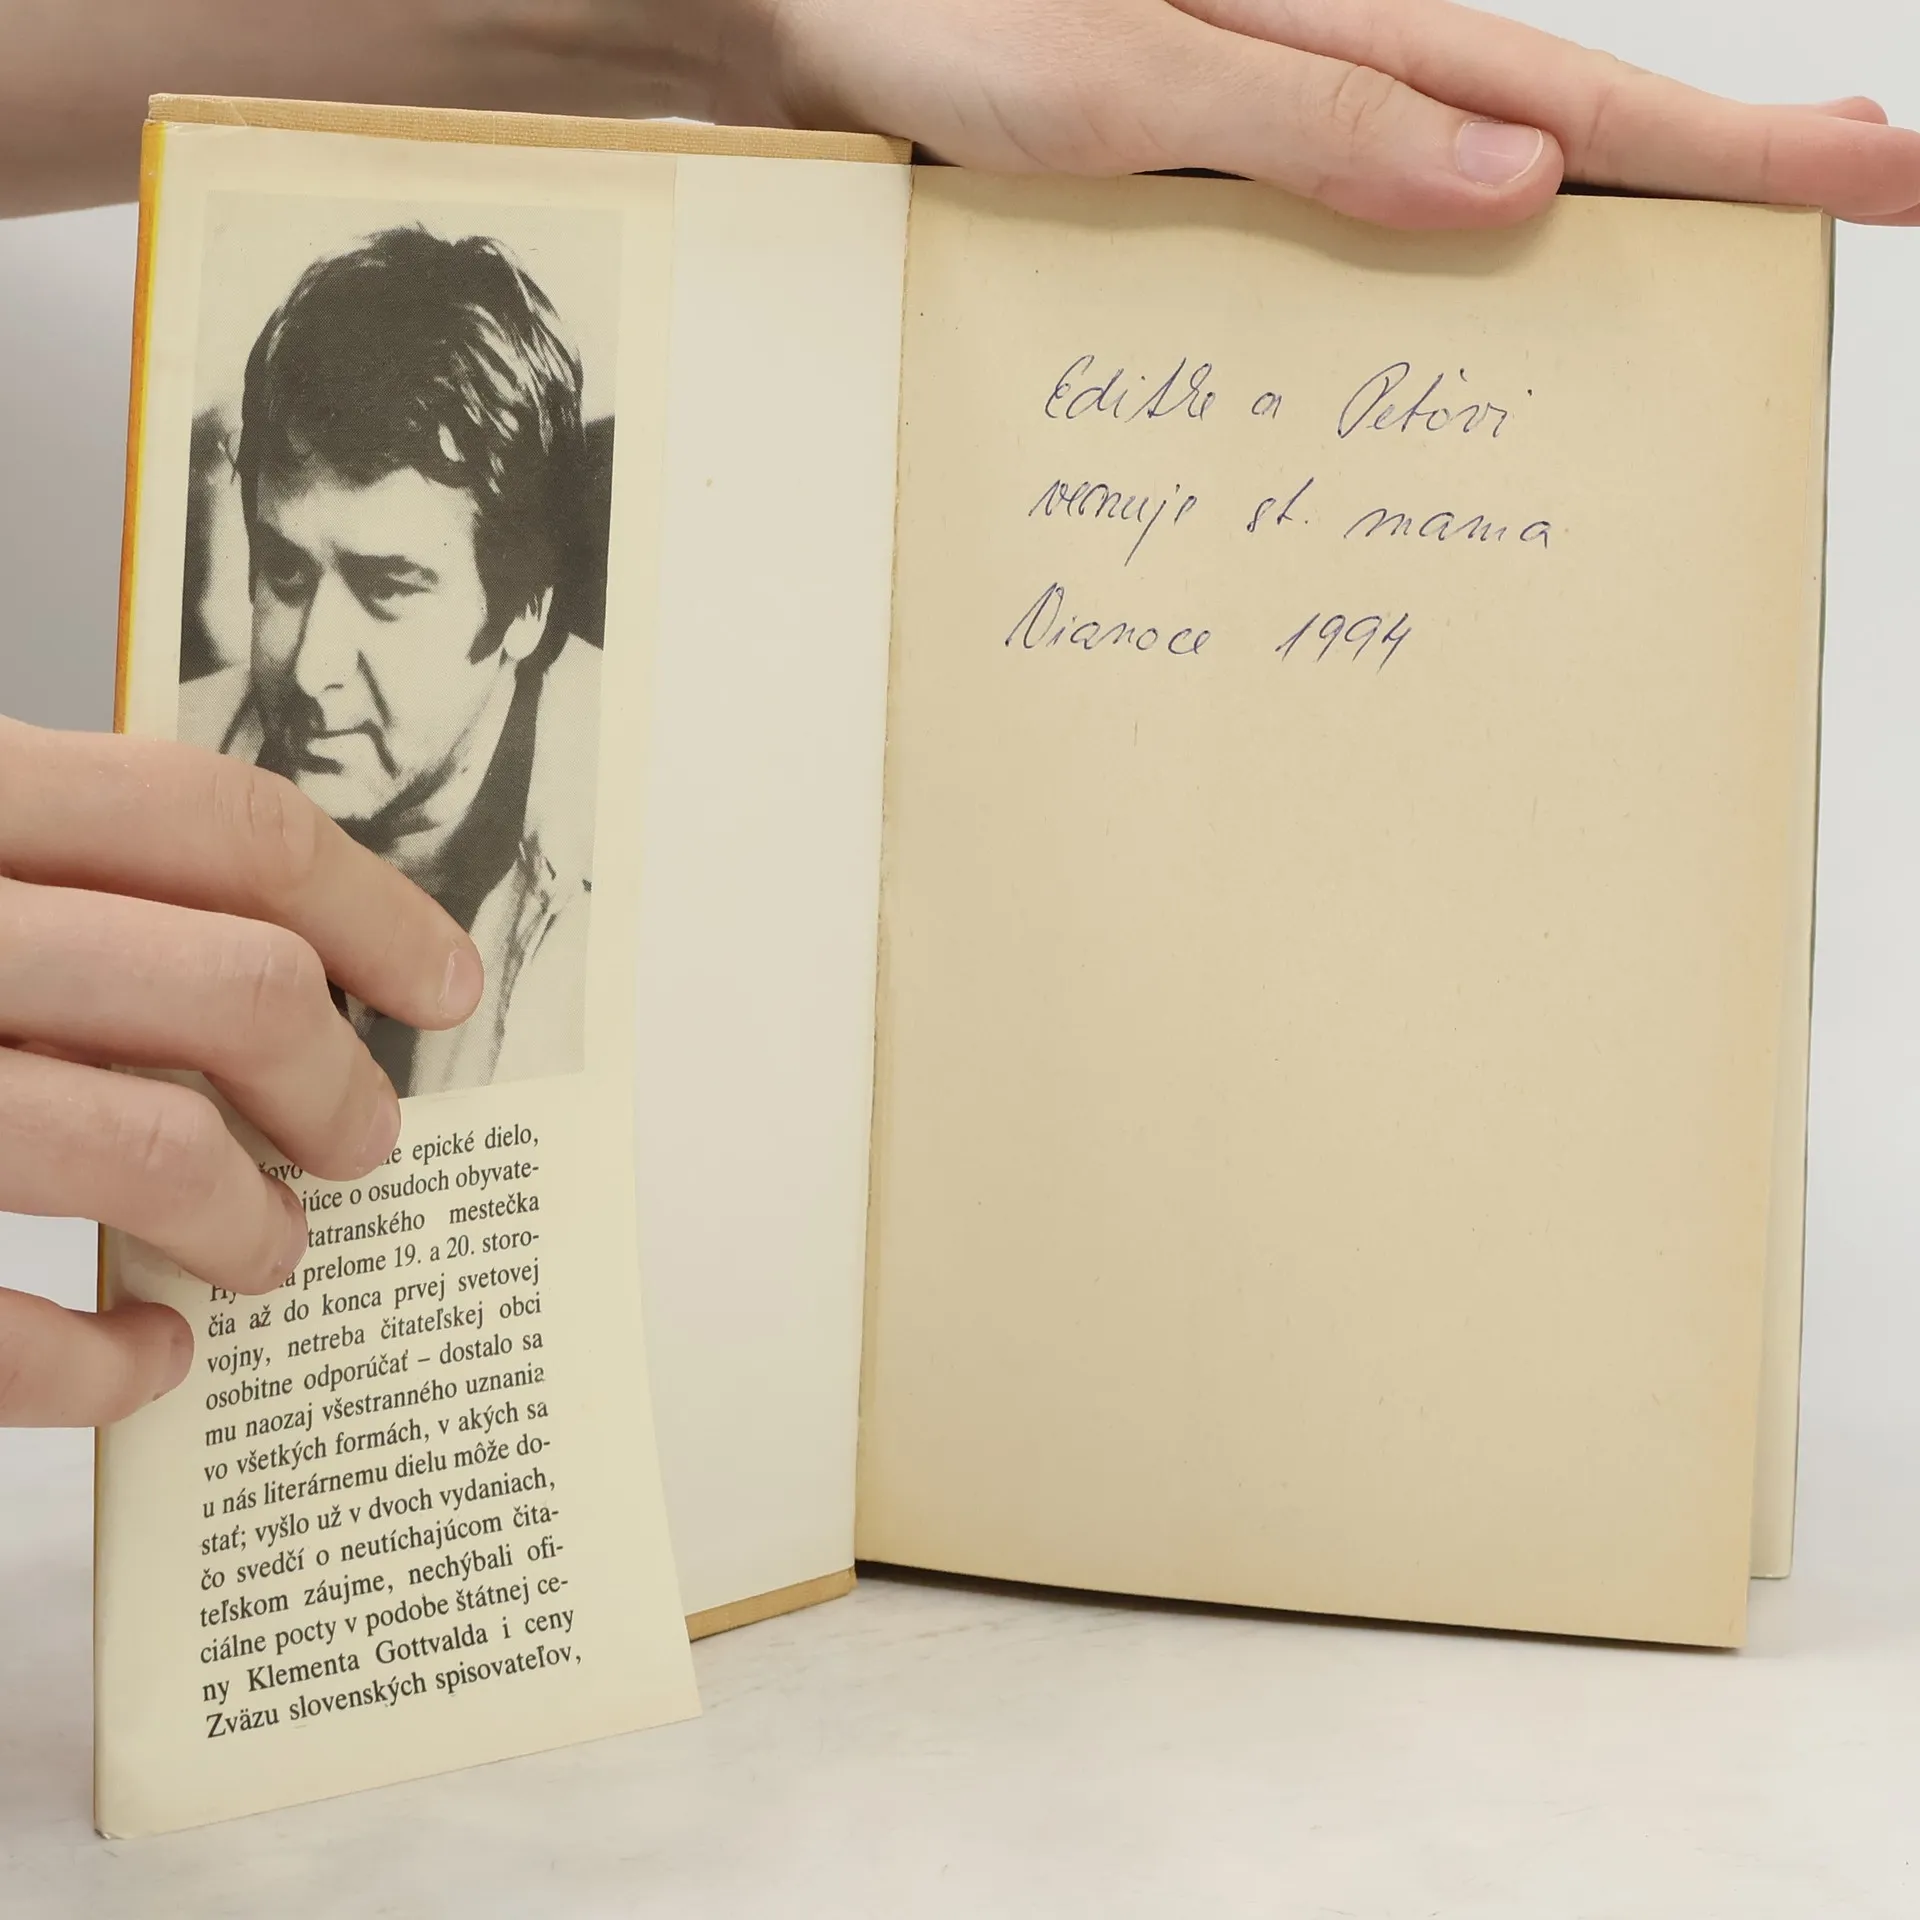 epické dielo,
júce o osudoch obyvate-
tatranského mestečka
prelome 19. a 20. storo-
čia až do konca prvej svetovej
vojny, netreba čitateľskej obci
osobitne odporúčať – dostalo sa
mu naozaj všestranného uznania
vo všetkých formách, v akých sa
u nás literárnemu dielu môže do-
stať; vyšlo už v dvoch vydaniach,
čo svedčí o neutíchajúcom čita-
teľskom záujme, nechýbali ofi-
ciálne pocty v podobe štátnej ce-
ny Klementa Gottvalda i ceny
Zväzu slovenských spisovateľov,
Editke a Peťovi
venuje st. mama
Vianoce 1994